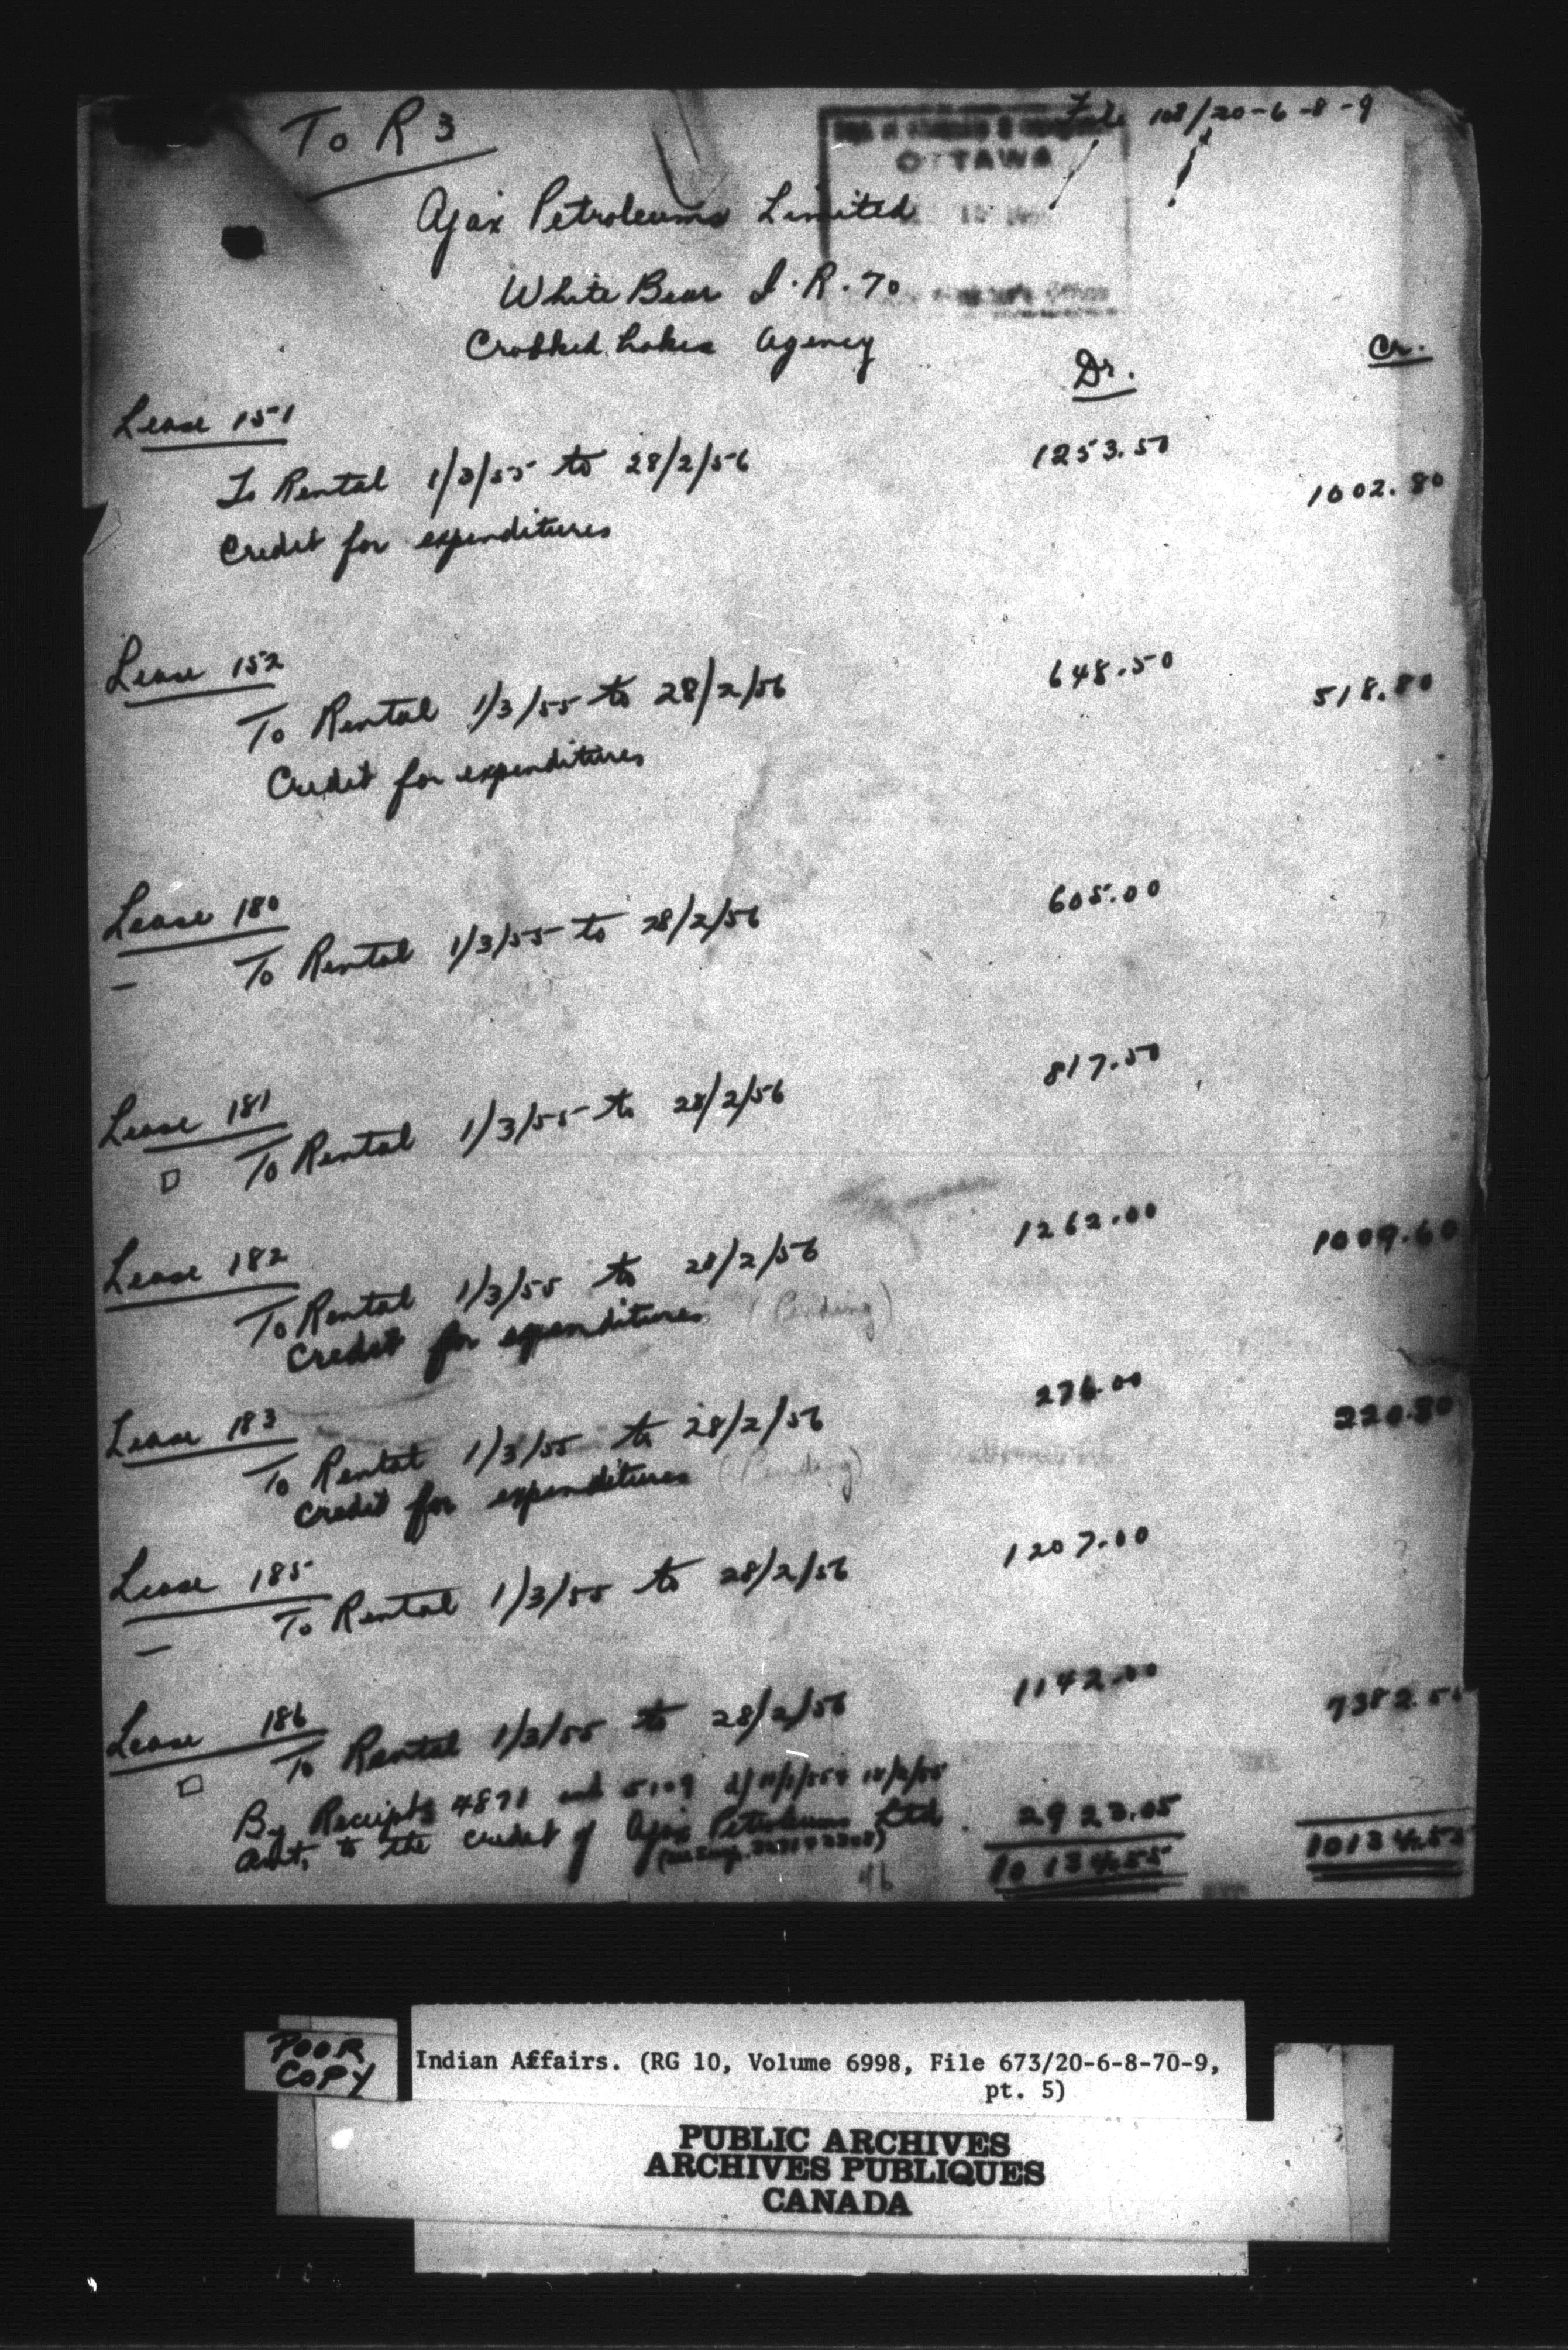 To R 3
File 108/20-6-8-9
OTTAWA
Ajax Petroleums Limited
White Bear I.R. 70
Crooked Lakes Agency
Dr. Cr.
Lease 151
To Rental 1/3/55 to 28/2/56 1253.50
Credit for expenditures 1002.80
Lease 152
To Rental 1/3/55 to 28/2/56 648.50
Credit for expenditures 518.80
Lease 180
To Rental 1/3/55 to 28/2/56 605.00
Lease 181
To Rental 1/3/55 to 28/2/56 817.50
Lease 182
To Rental 1/3/55 to 28/2/56 1262.00
Credit for expenditures (Pending) 1009.60
Lease 183
To Rental 1/3/55 to 28/2/56 276.00
Credit for expenditures (Pending) 220.80
Lease 185
To Rental 1/3/55 to 28/2/56 1207.00
Lease 186
To Rental 1/3/55 to 28/2/56 1142.00
By Receipts 4871 and 5109 7382.55
Amt. to the credit of Ajax Petroleums Ltd. 2923.05
10134.55 10134.55
POOR
COPY
Indian Affairs. (RG 10, Volume 6998, File 673/20-6-8-70-9,
pt. 5)
PUBLIC ARCHIVES
ARCHIVES PUBLIQUES
CANADA